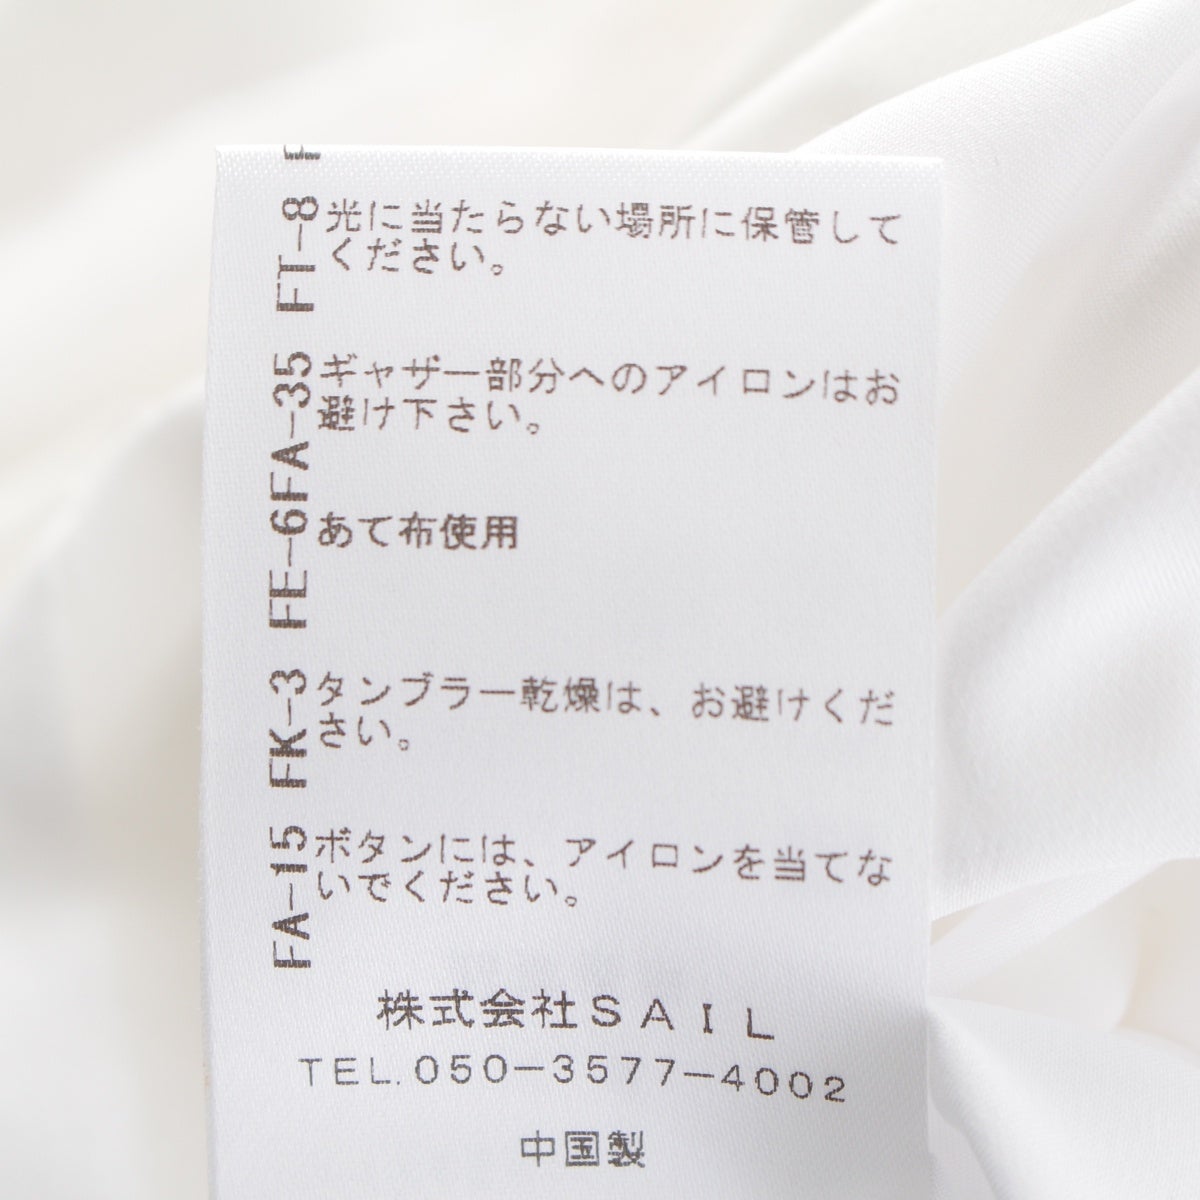 FT-8
光に当たらない場所に保管して
ください。
FE-6FA-35
ギャザー部分へのアイロンはお
避け下さい。
あて布使用
FK-3
タンブラー乾燥は、お避けくだ
さい。
FA-15
ボタンには、アイロンを当てな
いでください。
株式会社SAIL
TEL.050-3577-4002
中国製